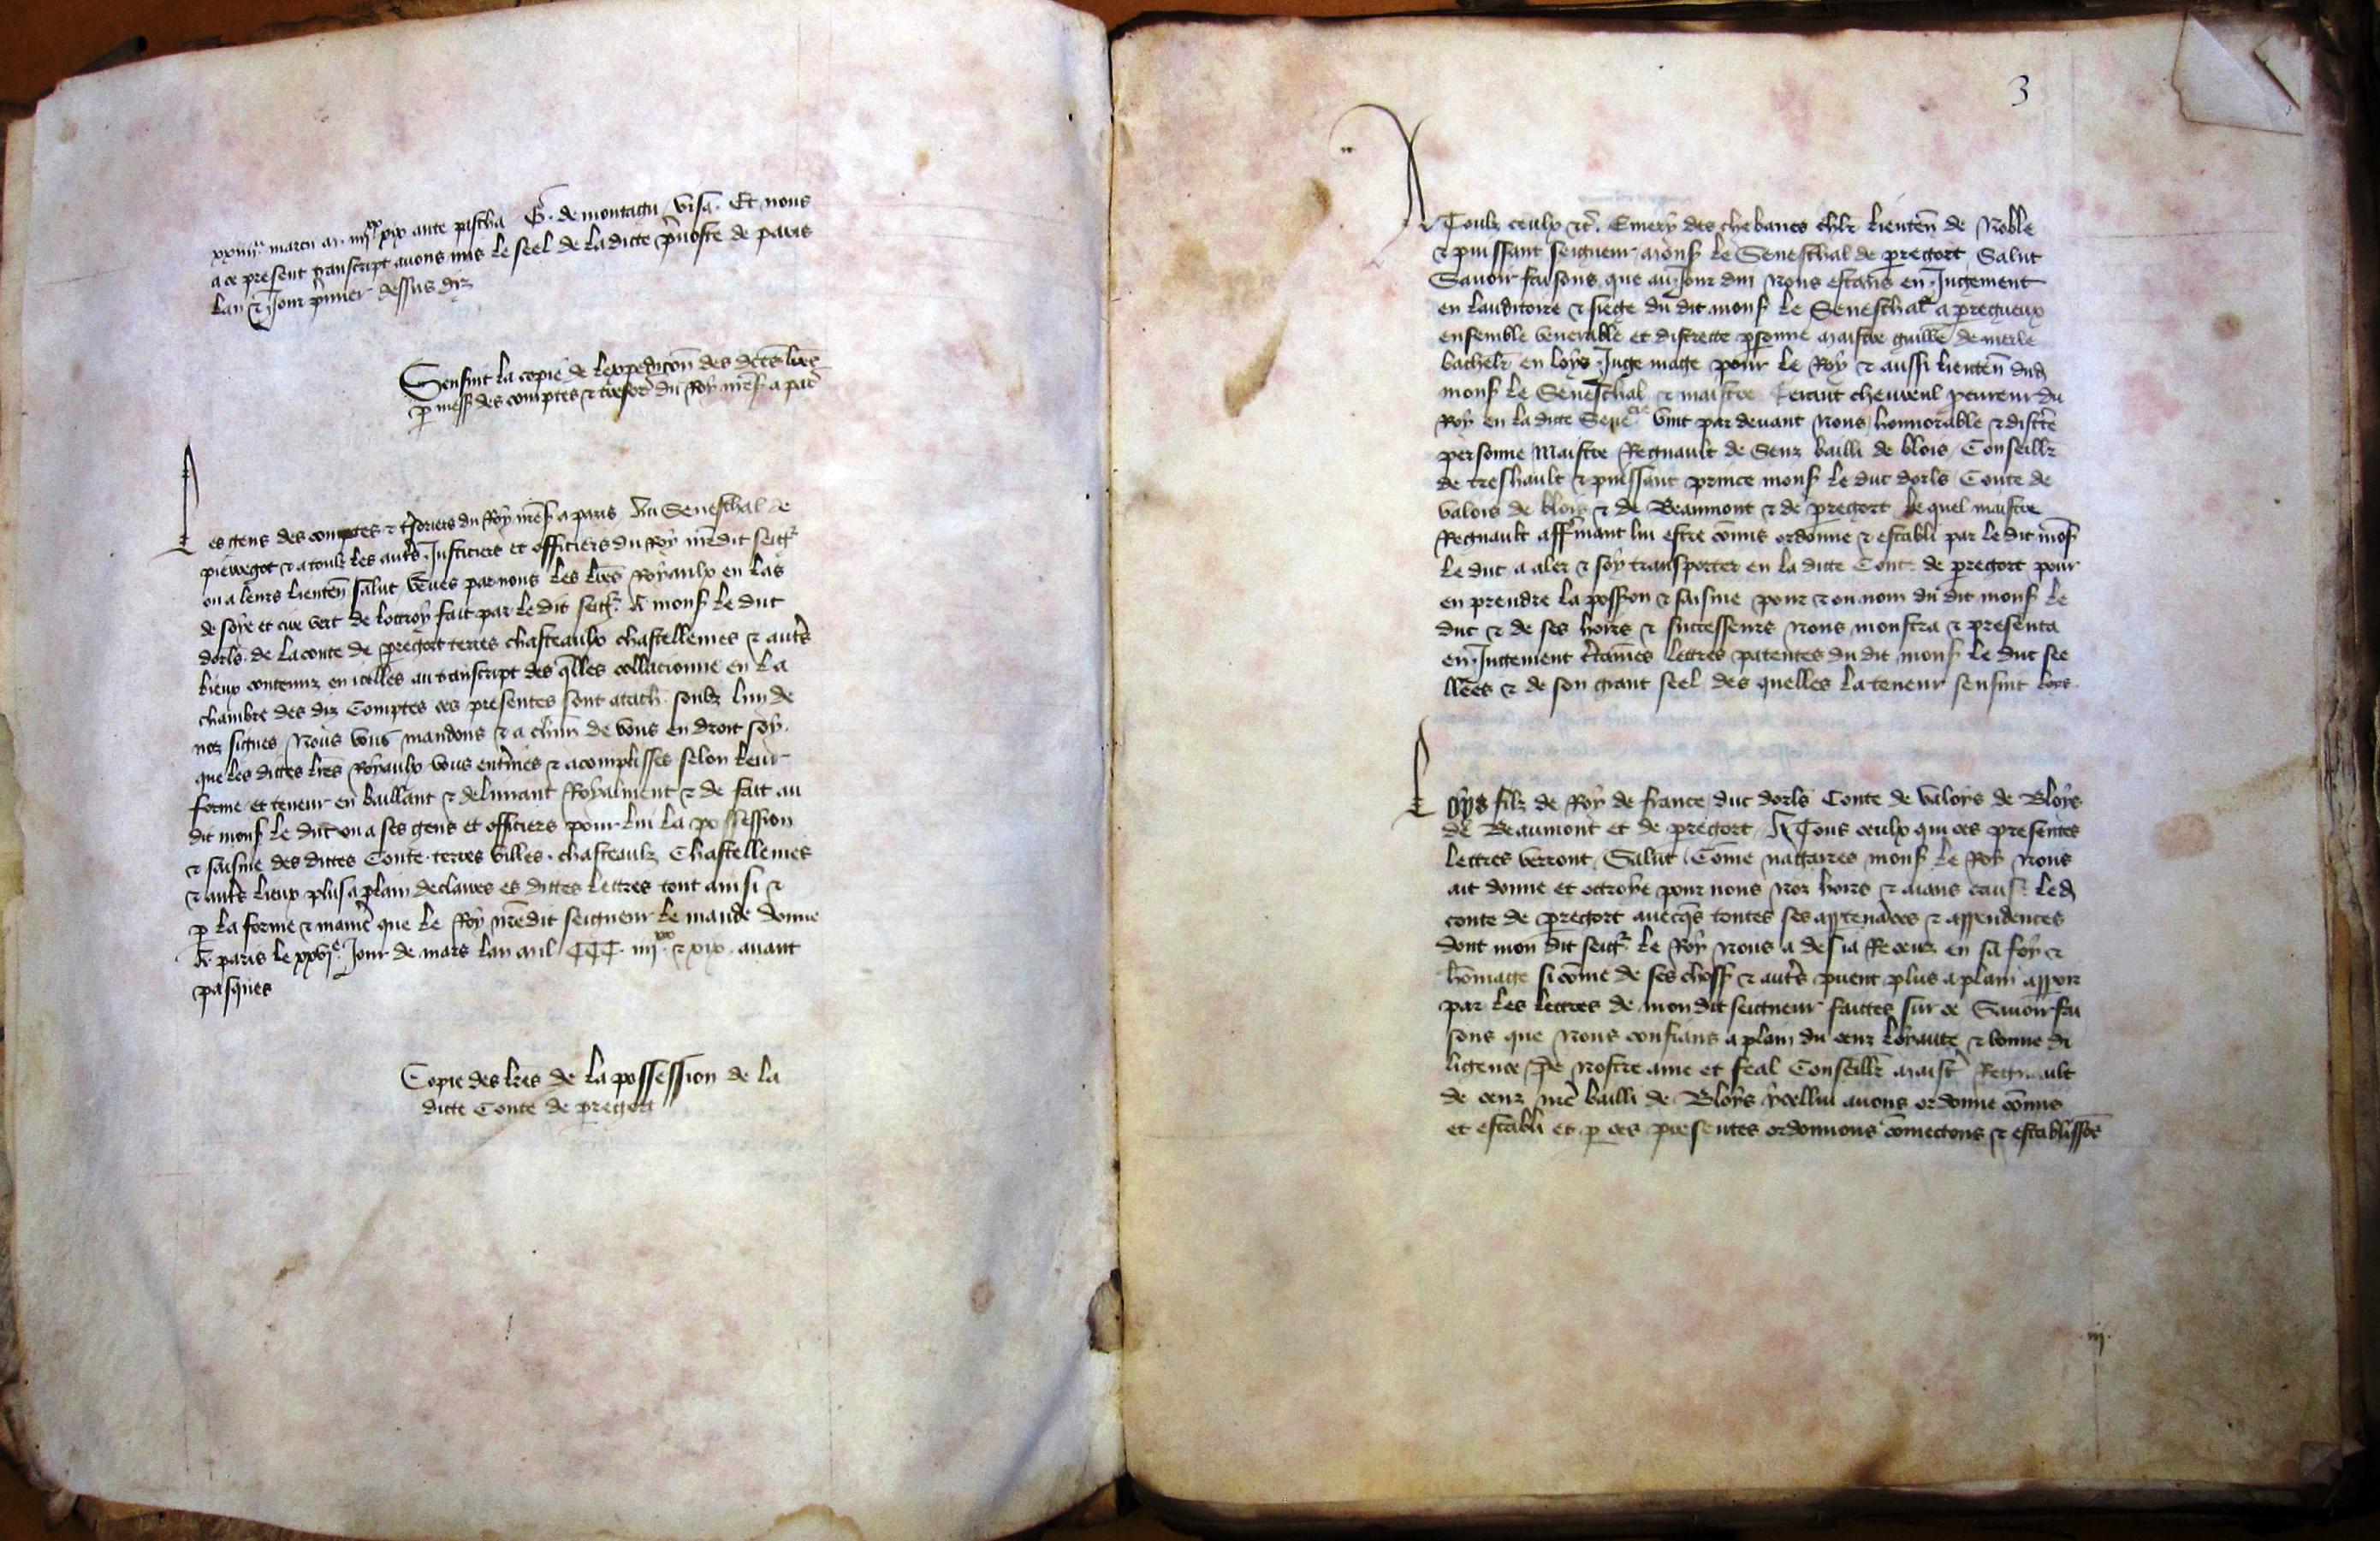 xxiiii^e marcii m. iiii^xx xix ante pascha G. de montagu visa. Et nous
a ce present transcript avons mis le seel de la dicte p̃voste de paris
lan & Jour p̃mier dessus diz
Sensuit la copie de lexpedicion des dctes lr̃es
p mess des comptes & tresor̃ du Roy nr̃es a par
Les gens des comptes & tresoriers du Roy nr̃es a paris Au Seneschal de
pierregort & a touz les autr̃s Justiciers et officiers du Roy nr̃edit seigr
ou a leurs lieuten̄ salut veues par nous les lr̃es Royaulx en las
de soye et cire vert de lottroy fait par le dit seigr A mons le duc
dorl̃s de la conte de pregort terres chasteaulx chastellenies & autr̃s
lieux contenuz en icelles au transcript des q̃lles collacionne en la
chambre des diz Comptes ces presentes sont atach soubz lun de
noz signes Nous vous mandons & a chũn de vous en droit soy
que les dittes lr̃es Royaulx vous ent̃ines & acomplisses selon leur
forme et teneur en baillant & delivrant Royalment & de fait au
dit mons le duc ou a ses gens et officiers pour lui la possession
& saisine des dittes Conte terres villes chasteaulz Chastellenies
& autr̃s lieux plus a plain declairez es dittes lettres tout ainsi &
p la forme & manie᷑ que le Roy nr̃edit seigneur le mande donne
A paris le xxvj^e Jour de mars lan mil CCC iiii^xx & xix avant
pasques
Copie des lr̃es de la possession de la
ditte Conte de pregort
3
A Toulz ceulx &c̃. Emery des chebanes chl̃r lieuten̄ de Noble
& puissant seigneur mons le Seneschal de pregort Salut
Savoir faisons que au Jour dui Nous estans en Jugement
en lauditoire & siege du dit mons le Seneschal a pregueux
ensemble venerable et discrette p̃sonne maistre guillẽ de merle
bachelr en loys Juge mage pour le Roy & aussi lieuten̄ dud
mons le Seneschal & maistre procureur du
Roy en la ditte Sen vint par devant Nous honnorable & discr̃te
personne Maistre Regnault de Senz bailli de blois Conseillr
de treshault & puissant prince mons le duc dorl̃s Conte de
valois de blois & de Beaumont & de pregort le quel maistre
Regnault affirmant lui estre cõmis ordonne & establi par le dit mons
le duc a aler & soy transporter en la ditte Conte de pregort pour
en prendre la possion & saisine pour & ou nom du dit mons le
duc & de ses hoirs & successeurs Nous monstra & presenta
en Jugement c̃taines lettres patentes du dit mons le duc see
llees & de son grant seel des quelles la teneur sensuit
Loys filz de Roy de france duc dorl̃s Conte de Valoys de Bloys
de Beaumont et de pregort A Tous ceulx qui ces presentes
lettres verront Salut Cõme nagaires mons le Roy Nous
ait donne et ottroye pour nous Noz hoirs & aians cause led
conte de pregort avecq̃s toutes ses appartenãces & appendences
dont mon dit seigr le Roy Nous a desia Receuz en sa foy &
hõmage si cõme de ses choses & autr̃s puent plus a plain appoir
par les lettres de mondit seigneur faittes sur ce Savoir fai
sons que Nous confians a plain du senz loyaute & bonne di
ligence de Nostre ame et feal Conseillr maistr̃ Regnault
de cenz nr̃e bailli de Bloys ycellui avons ordonne cõmis
et establi et p ces presentes ordonnons cõmettons & establissõs
iij.